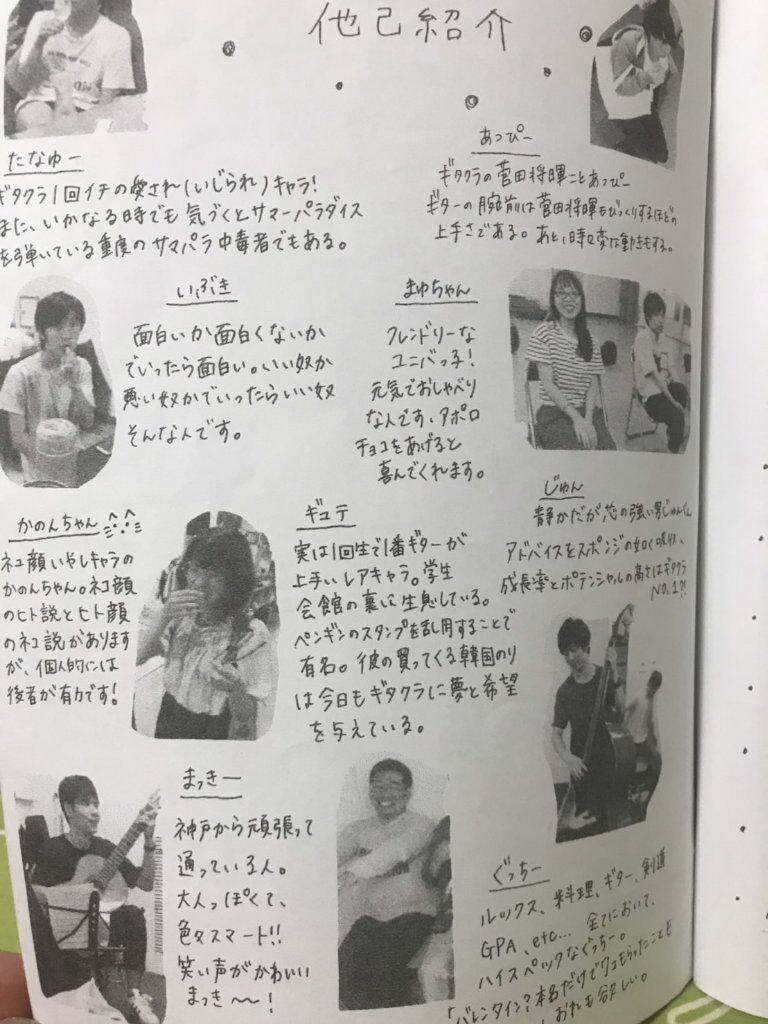 他己紹介
たなゅー
ギタクラ1回イチの愛され(いじられ)キャラ!
また、いかなる時でも気づくとサマーパラダイス
を弾いている重度のサマパラ中毒者でもある。
あっぴー
ギタクラの菅田将暉ことあっぴー
ギターの腕前は菅田将暉もびっくりするほどの
上手さである。あと、時々変な動きもする。
いぶき
面白いか面白くないか
でいったら面白い。いい奴か
悪い奴かでいったらいい奴
そんな人です。
まゅちゃん
フレンドリーな
ユニバっ子!
元気でおしゃべり
なんです、アポロ
チョコをあげると
喜んでくれます。
かのんちゃん
ネコ顔いやしキャラの
かのんちゃん。ネコ顔
のヒト説とヒト顔
のネコ説があります
が、個人的には
後者が有力です!
ギュテ
実は1回生で1番ギターが
上手いレアキャラ。学生
会館の裏に生息している。
ペンギンのスタンプを乱用することで
有名。彼の買ってくる韓国のり
は今日もギタクラに夢と希望
を与えている。
じゅん
静かだが芯の強い男じゅんくん
アドバイスをスポンジの如く吸収、
成長率とポテンシャルの高さはギタクラ
NO.1?!
まっきー
神戸から頑張って
通っている人。
大人っぽくて、
色々スマート!!
笑い声がかわいい
まっき〜!
ぐっちー
ルックス、料理、ギター、剣道
GPA、etc... 全てにおいて、
ハイスペックなぐっちー。
「バレンタイン?本名だけで7コもらったことも
おれも欲しい。